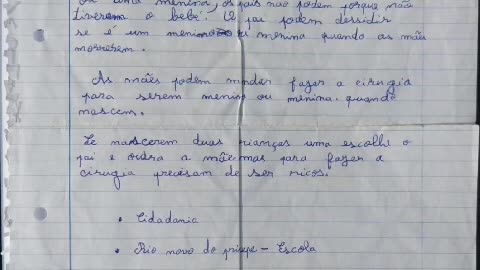 ou uma menina, os pais não podem porque não
tiveram o bebê. O pai podem dessidir
se é um menino ou menina quando as mãe
morrerem.
As mães podem mandar fazer a cirugia
para serem menino ou menina quando
nascem.
Se nascerem duas crianças uma escolhe o
pai e outra a mãe mas para fazer a
cirugia precisam de ser ricos.
• Cidadania
• Rio novo do prisepe - Escola